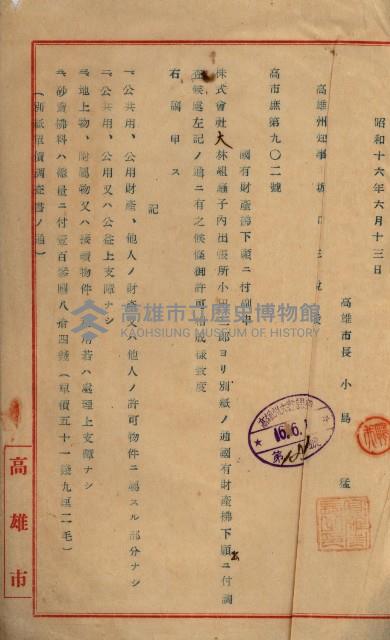 昭和十六年六月十三日
高雄市長 小島 猛
高雄州知事
高市庶第九〇二號
國有財產拂下願ニ付副申
株式會社大林組 子內出張所小 郎ヨリ別紙ノ通國有財產拂下願出ニ付調
候處左記ノ通ニ有之候條御許可相成樣致度
右副申ス
記
一、公共用、公用財產、他人ノ財產又ハ他人ノ許可物件ニ屬スル部分ナシ
二、公共用、公用又ハ公益上支障ナシ
三、地上物、附屬物又ハ接續物件 使用若ハ處理上支障ナシ
四、砂 拂料ハ 付壹百參圓八拾四錢(單價五十一錢九厘二毛)
(別紙單價調查書ノ通)
高雄市
16.6.1
第 號
高雄市立歷史博物館
KAOHSIUNG MUSEUM OF HISTORY